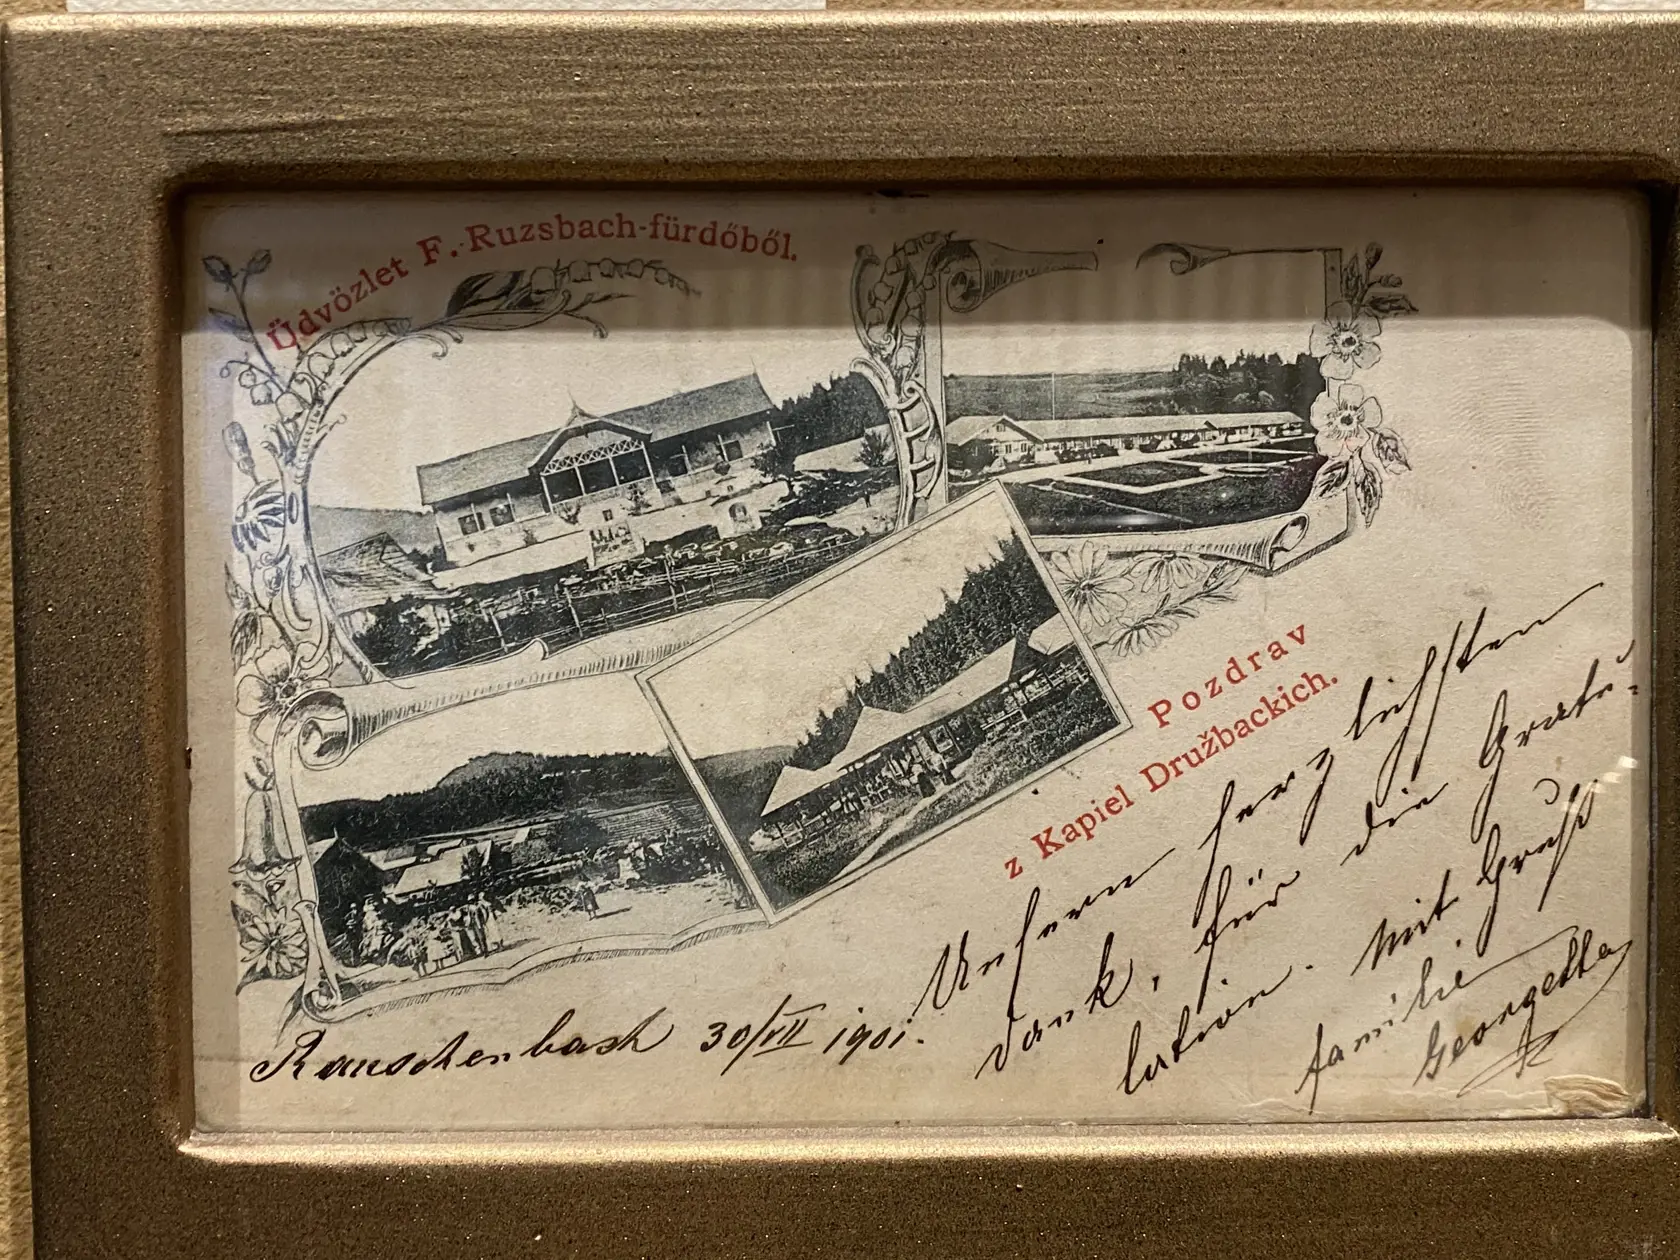 Üdvözlet F. Ruzsbach-fürdőből.
Pozdrav
z Kapiel Družbackich.
Rauschenbach 30/VII 1901.
Unsern herzlichsten
Dank, für die Gratu-
lation. Mit Gruß
Familie
Georgette